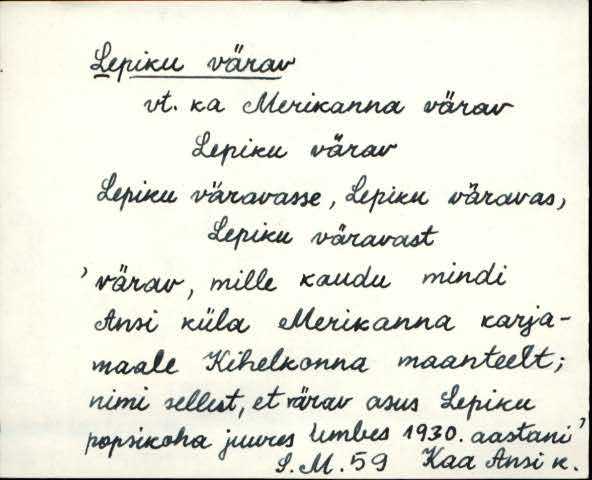 Lepiku värav
vt. ka Merikanna värav
Lepiku värav
Lepiku väravasse, Lepiku väravas,
Lepiku väravast
'värav, mille kaudu mindi
Ansi küla Merikanna karja-
maale Kihelkonna maanteelt;
nimi sellest, et värav asus Lepiku
popsikoha juures umbes 1930. aastani'
S.M. 59 Kaa Ansi k.